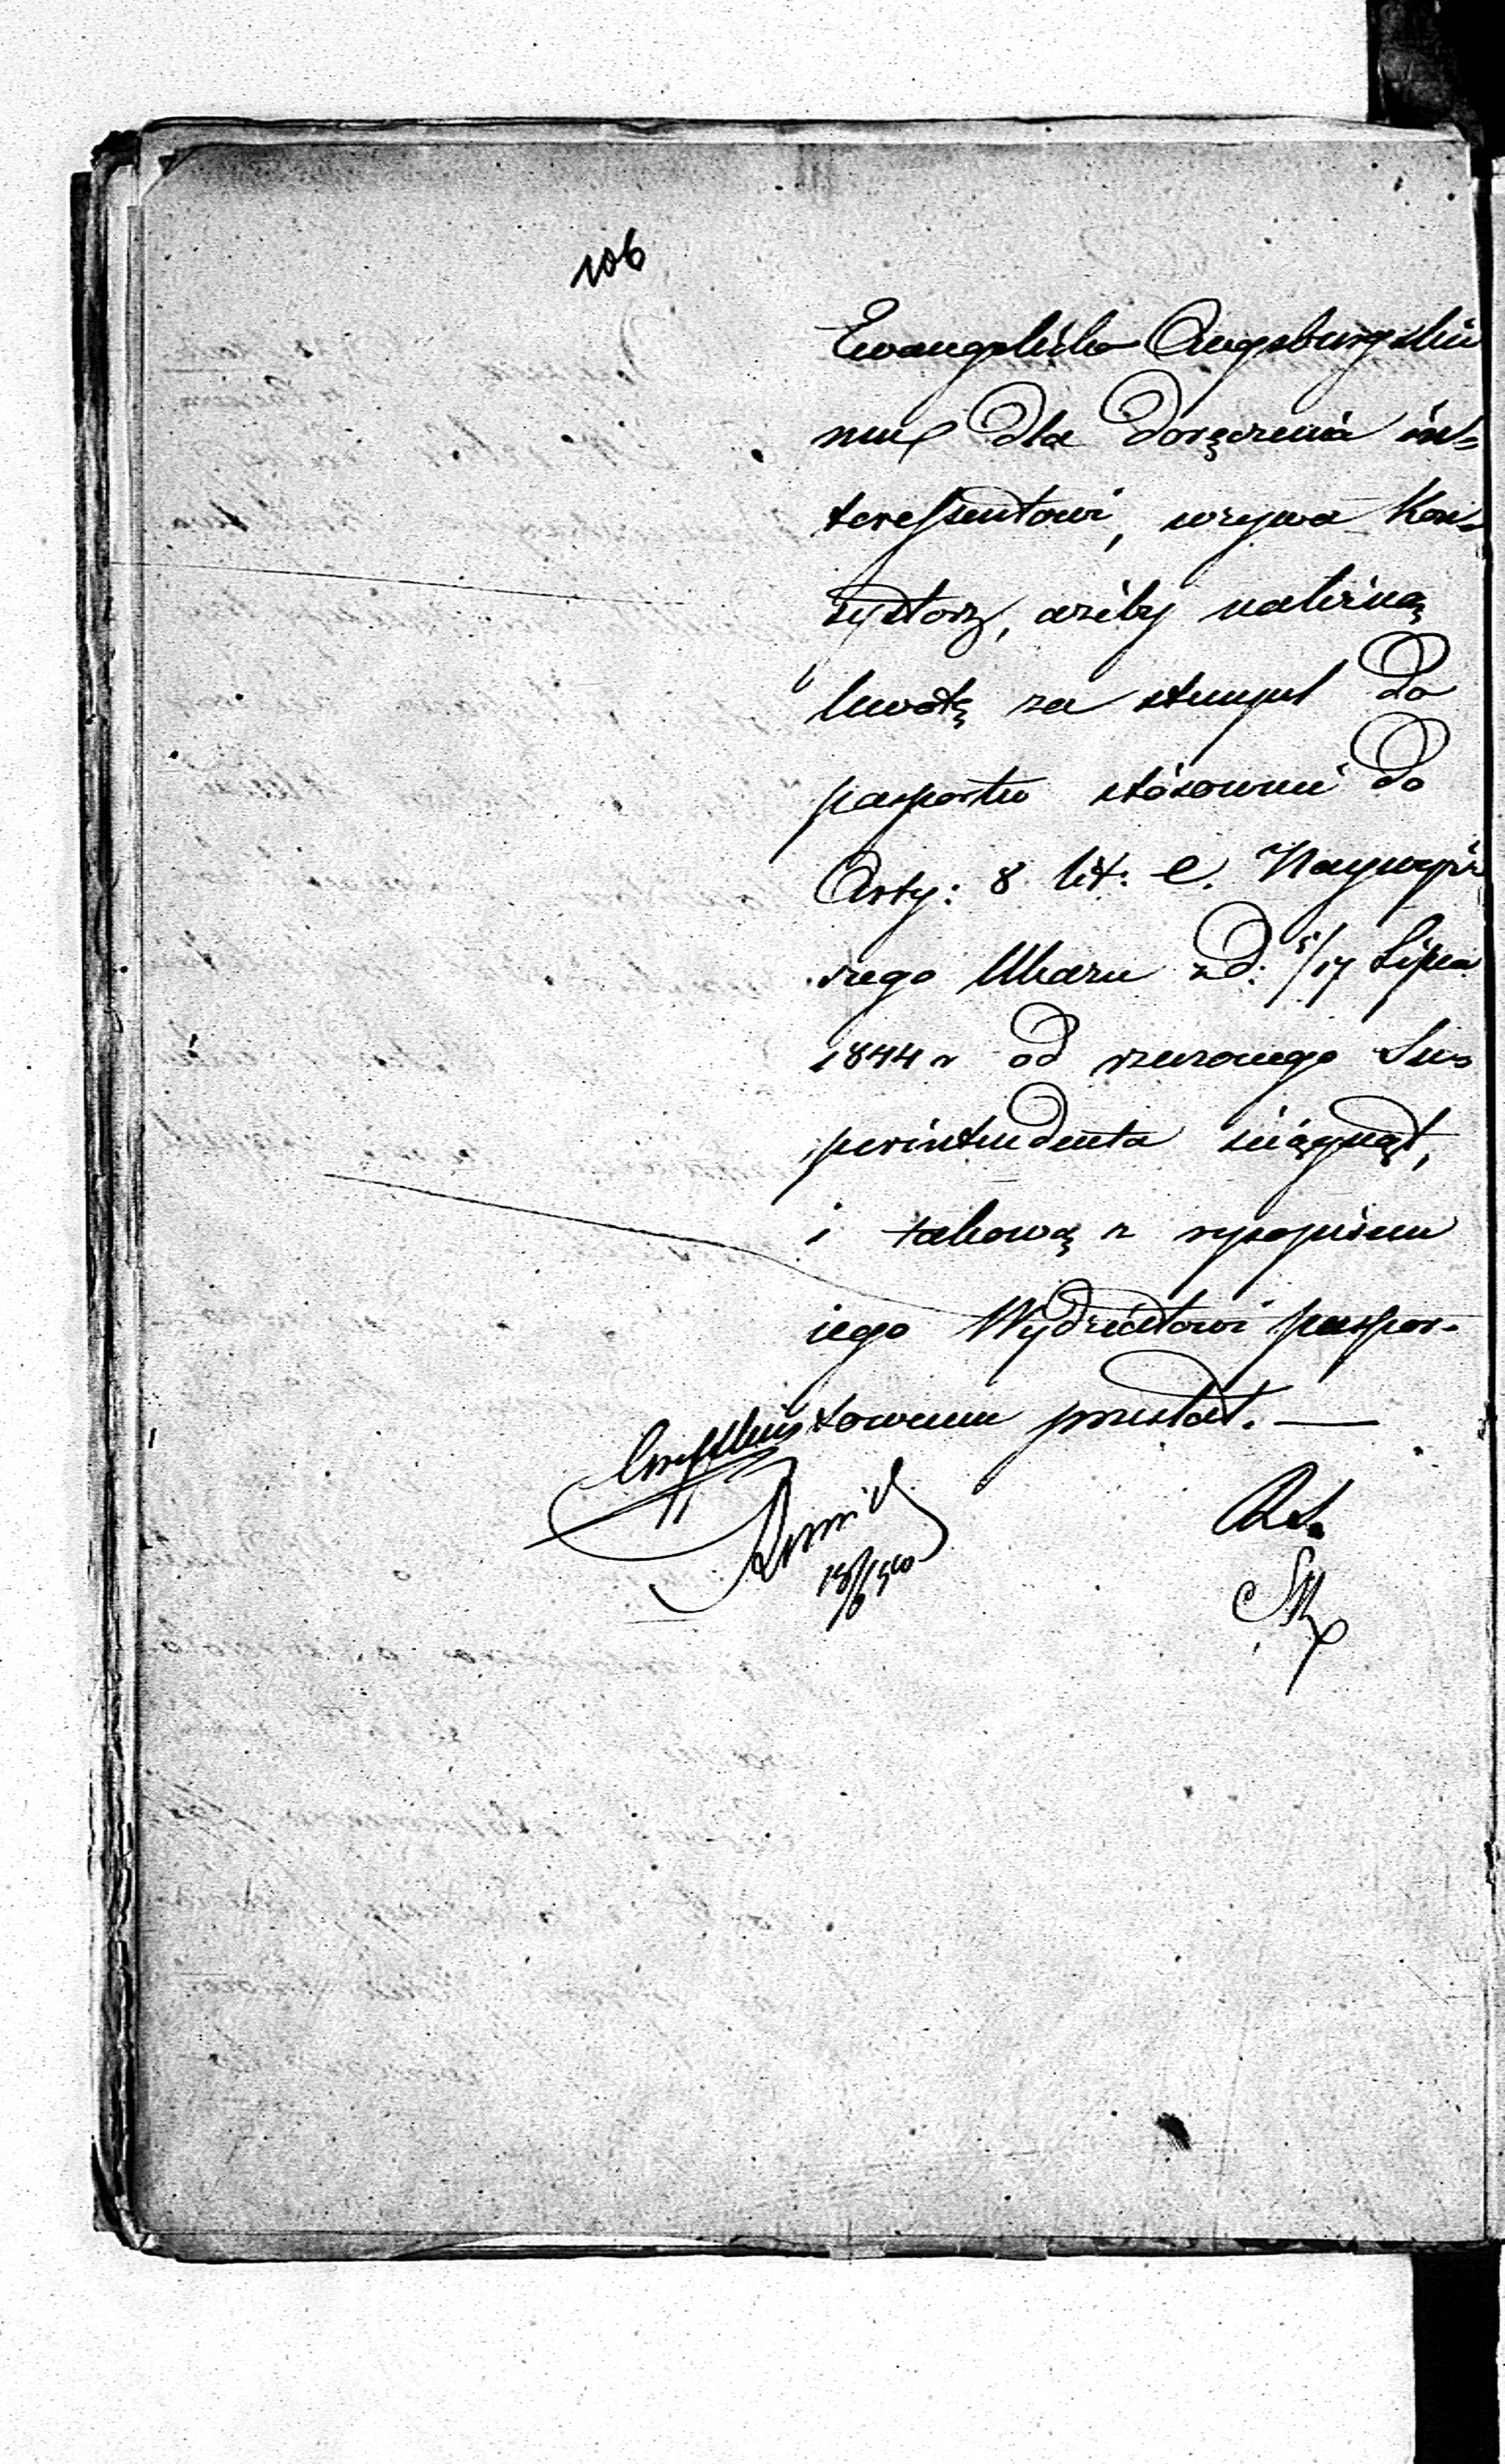 106
Ewangelicko Augsburgskie
mu dla doręczenia in=
teressentowi, wzywa Kon=
systorz, ażeby należną
kwotę za stempel do
pasportu stósownie do
Arty: 8 lit: e. Naywyż
szego Ukazu z d: 5/17 Lipca
1844 r od rzeczonego Su=
perintendenta ściągnął,
i takową z
iego Wydziałowi paspor-
towemu przesłał. —